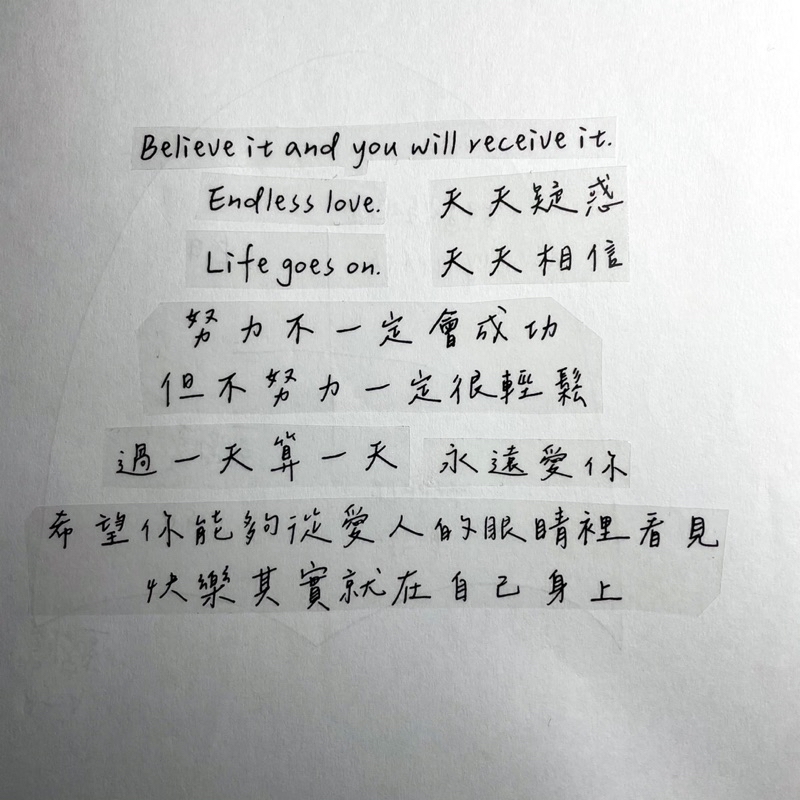 Believe it and you will receive it.
Endless love.
天天疑惑
Life goes on.
天天相信
努力不一定會成功
但不努力一定很輕鬆
過一天算一天
永遠愛你
希望你能夠從愛人的眼睛裡看見
快樂其實就在自己身上